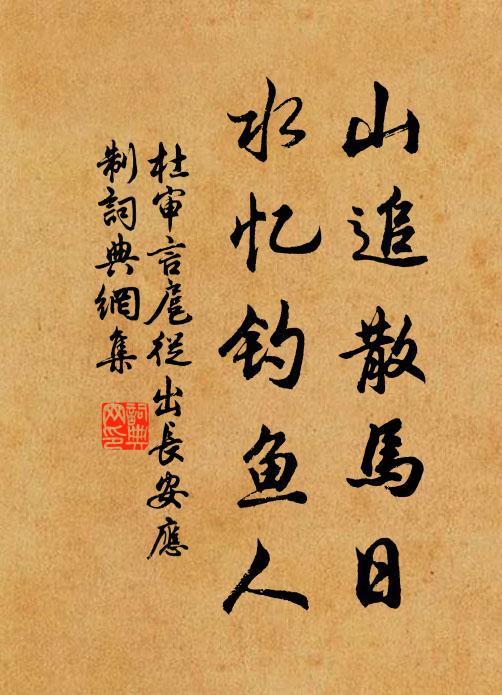 山追散馬日
水忆钓鱼人
杜审言扈從出長安應
制詞典網集
詞典
网印